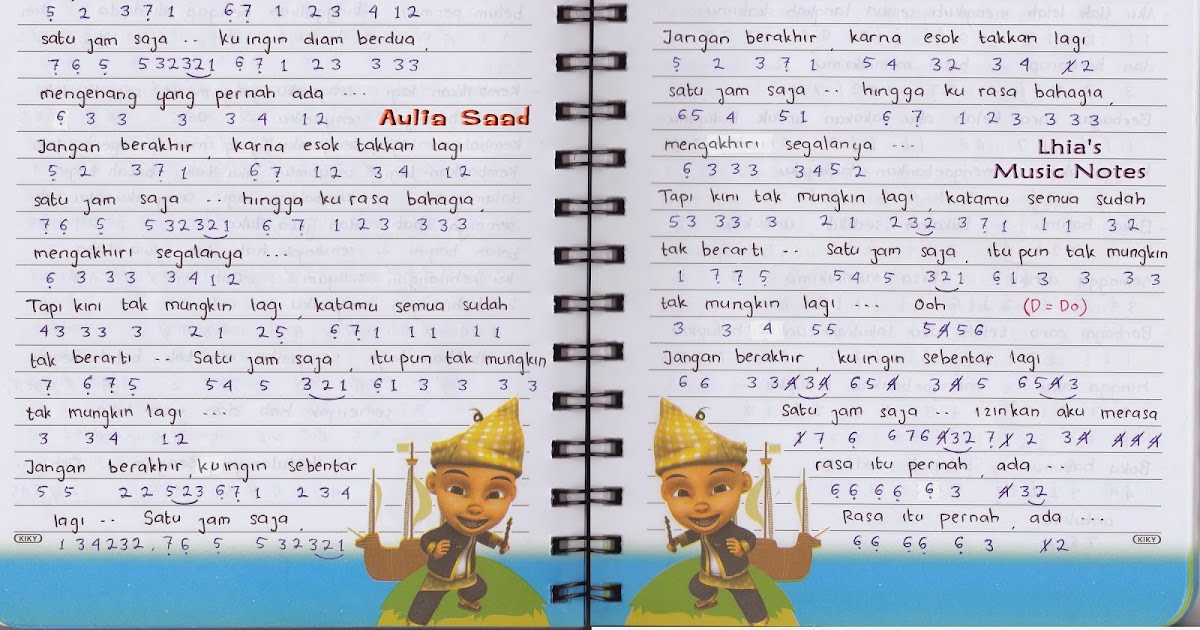 5 2 3 7 1 6 7 1 2 3 4 1 2
satu jam saja .. ku ingin diam berdua,
7 6 5 5 3 2 3 2 1 6 7 1 2 3 3 3 3
mengenang yang pernah ada ...
6 3 3 3 3 4 1 2
Aulia Saad
Jangan berakhir, karna esok takkan lagi
5 2 3 7 1 6 7 1 2 3 4 1 2
satu jam saja .. hingga ku rasa bahagia,
7 6 5 5 3 2 3 2 1 6 7 1 2 3 3 3 3
mengakhiri segalanya ...
6 3 3 3 3 4 1 2
Tapi kini tak mungkin lagi, katamu semua sudah
4 3 3 3 3 2 1 2 5 6 7 1 1 1 1 1
tak berarti .. Satu jam saja, itu pun tak mungkin
7 6 7 5 5 4 5 3 2 1 6 1 3 3 3 3
tak mungkin lagi ...
3 3 4 1 2
Jangan berakhir, ku ingin sebentar
5 5 2 2 5 2 3 6 7 1 2 3 4
lagi .. Satu jam saja,
1 3 4 2 3 2 , 7 6 5 5 3 2 3 2 1
KIKY
Jangan berakhir, karna esok takkan lagi
5 2 3 7 1 5 4 3 2 3 4 1 2
satu jam saja .. hingga ku rasa bahagia,
6 5 4 5 1 6 7 1 2 3 3 3 3
mengakhiri segalanya ...
6 3 3 3 3 4 5 2
Lhia's
Music Notes
Tapi kini tak mungkin lagi katamu semua sudah
5 3 3 3 3 2 1 2 3 2 3 7 1 1 1 3 2
tak berarti .. Satu jam saja, itu pun tak mungkin
1 7 7 5 5 4 5 3 2 1 6 1 3 3 3 3
tak mungkin lagi ... Ooh (D = Do)
3 3 4 5 5 5 4 5 6
Jangan berakhir, ku ingin sebentar lagi
6 6 3 3 4 3 4 6 5 4 3 4 5 6 5 4 3
Satu jam saja .. izinkan aku merasa
1 7 6 6 7 6 4 3 2 7 1 2 3 4 4 4 4
rasa itu pernah, ada ...
6 6 6 6 6 3 4 3 2
Rasa itu pernah, ada ...
6 6 6 6 6 3 1 2
KIKY